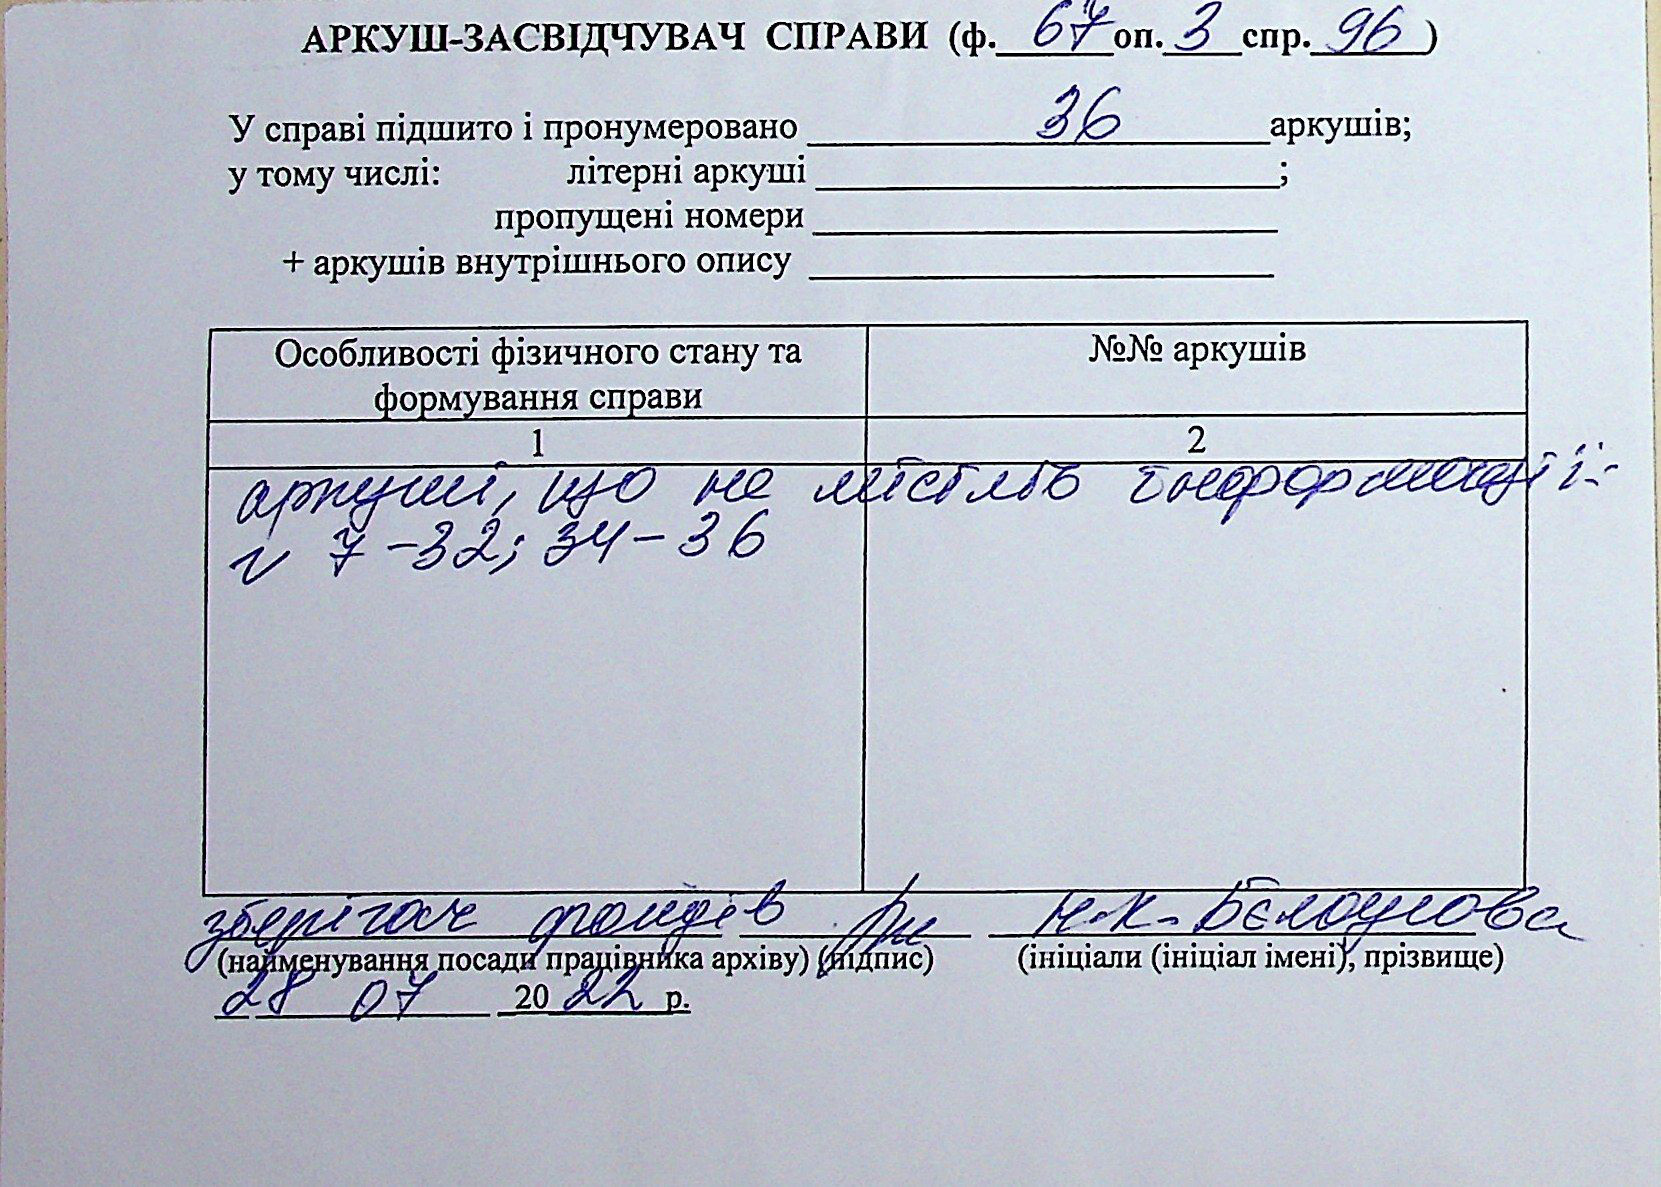 АРКУШ-ЗАСВІДЧУВАЧ СПРАВИ (ф. 67 оп. 3 спр. 96 )
У справі підшито і пронумеровано 36 аркушів;
у тому числі: літерні аркуші ;
пропущені номери
+ аркушів внутрішнього опису
Особливості фізичного стану та формування справи
№№ аркушів
1 2
аркуші, що не містять інформації:
7-32; 34-36
зберігач фондів Н.К. Бєлоусова
(найменування посади працівника архіву) (підпис) (ініціали (ініціал імені), прізвище)
28 07 2022 р.